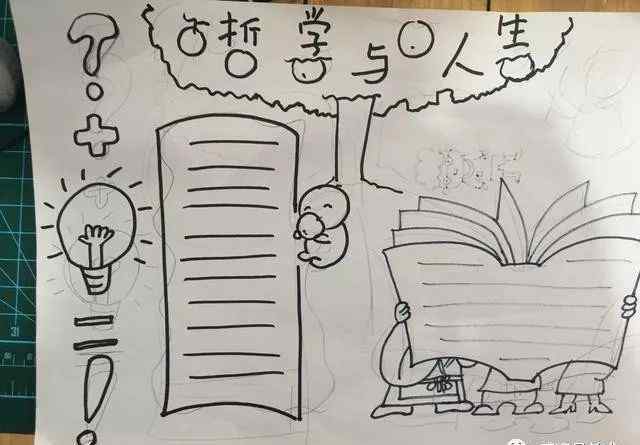 哲学与人生
?
+
=
!